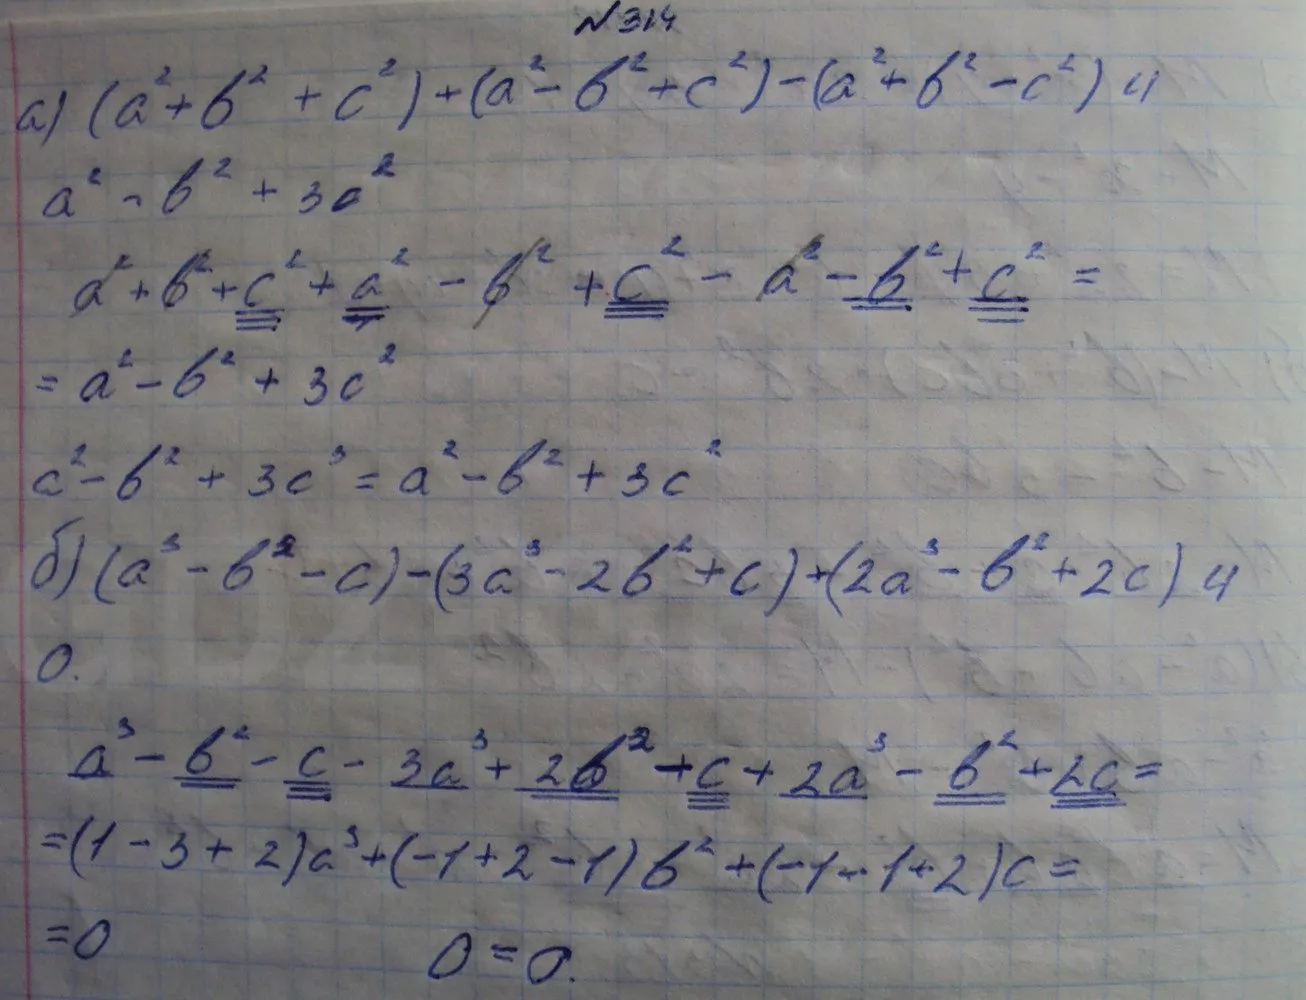 №314
а) (a² + b² + c²) + (a² - b² + c²) - (a² + b² - c²) и
a² - b² + 3c²
a² + b² + c² + a² - b² + c² - a² - b² + c² =
= a² - b² + 3c²
c² - b² + 3c³ = a² - b² + 3c²
б) (a³ - b² - c) - (3a³ - 2b² + c) + (2a³ - b² + 2c) и
0.
a³ - b² - c - 3a³ + 2b² + c + 2a³ - b² + 2c =
= (1 - 3 + 2)a³ + (-1 + 2 - 1)b² + (-1 - 1 + 2)c =
= 0 0 = 0.